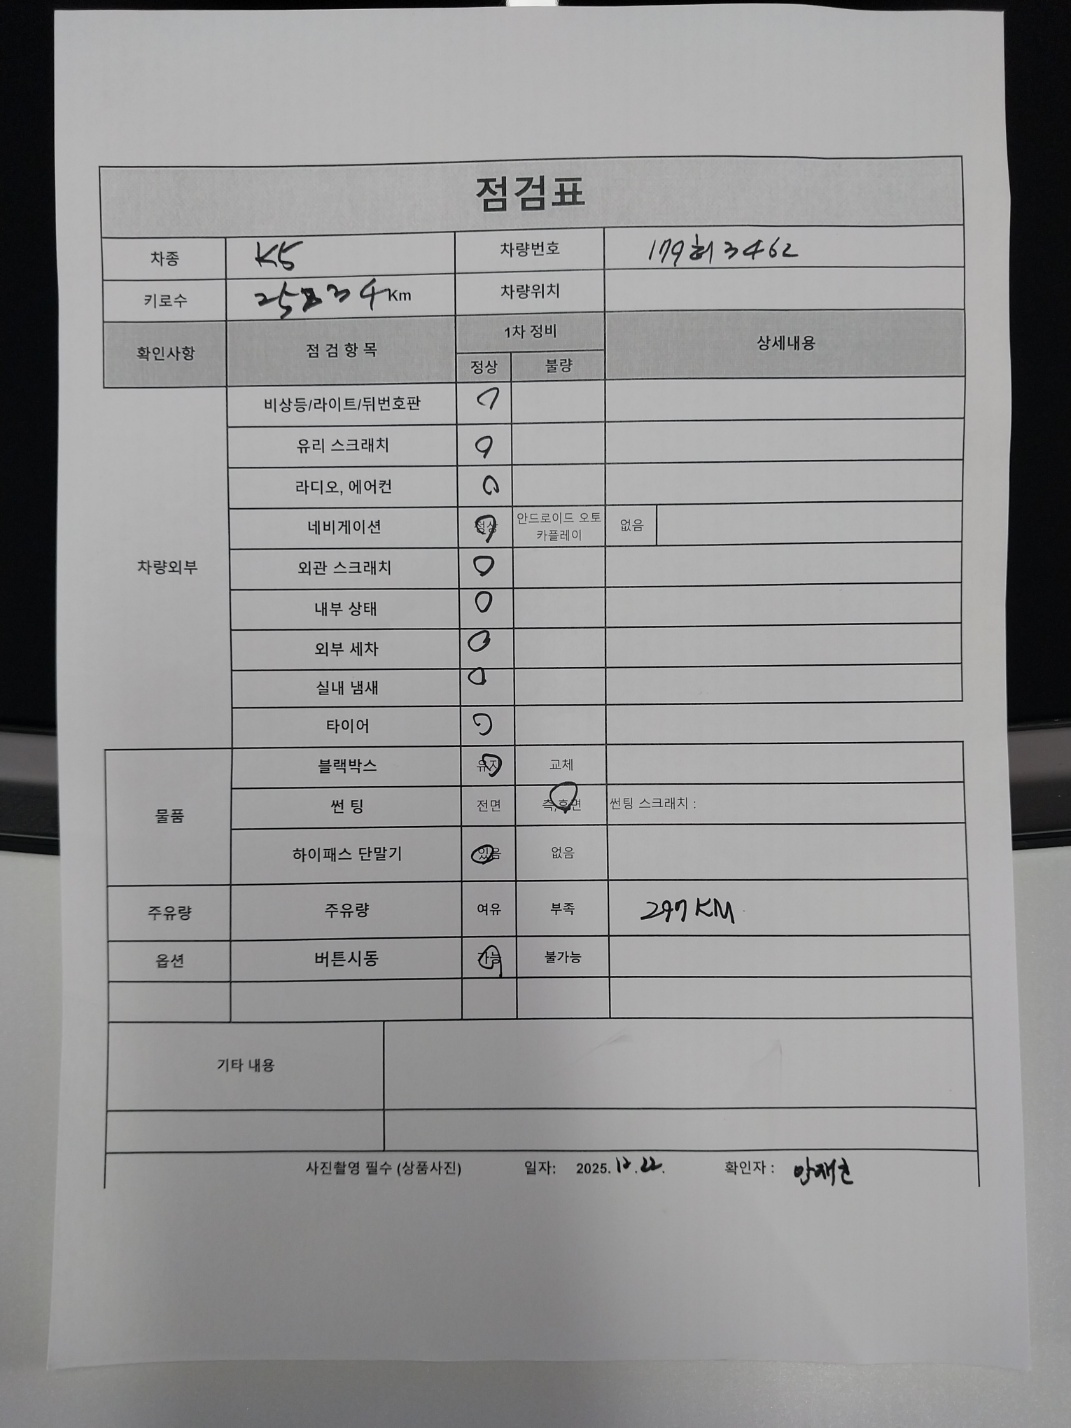 점검표
차종 K5 차량번호 179허3462
키로수 Km 차량위치
확인사항 점 검 항 목 1차 정비 상세내용
정상 불량
비상등/라이트/뒤번호판 O
유리 스크래치 O
라디오, 에어컨 O
네비게이션 정상 안드로이드 오토 카플레이 없음
차량외부 외관 스크래치 O
내부 상태 O
외부 세차 O
실내 냄새 O
타이어 O
물품 블랙박스 유지 교체
썬 팅 전면 측,후면 썬팅 스크래치 :
하이패스 단말기 있음 없음
주유량 주유량 여유 부족 297 KM
옵션 버튼시동 가능 불가능
기타 내용
사진촬영 필수 (상품사진) 일자: 2025.12.22. 확인자 :